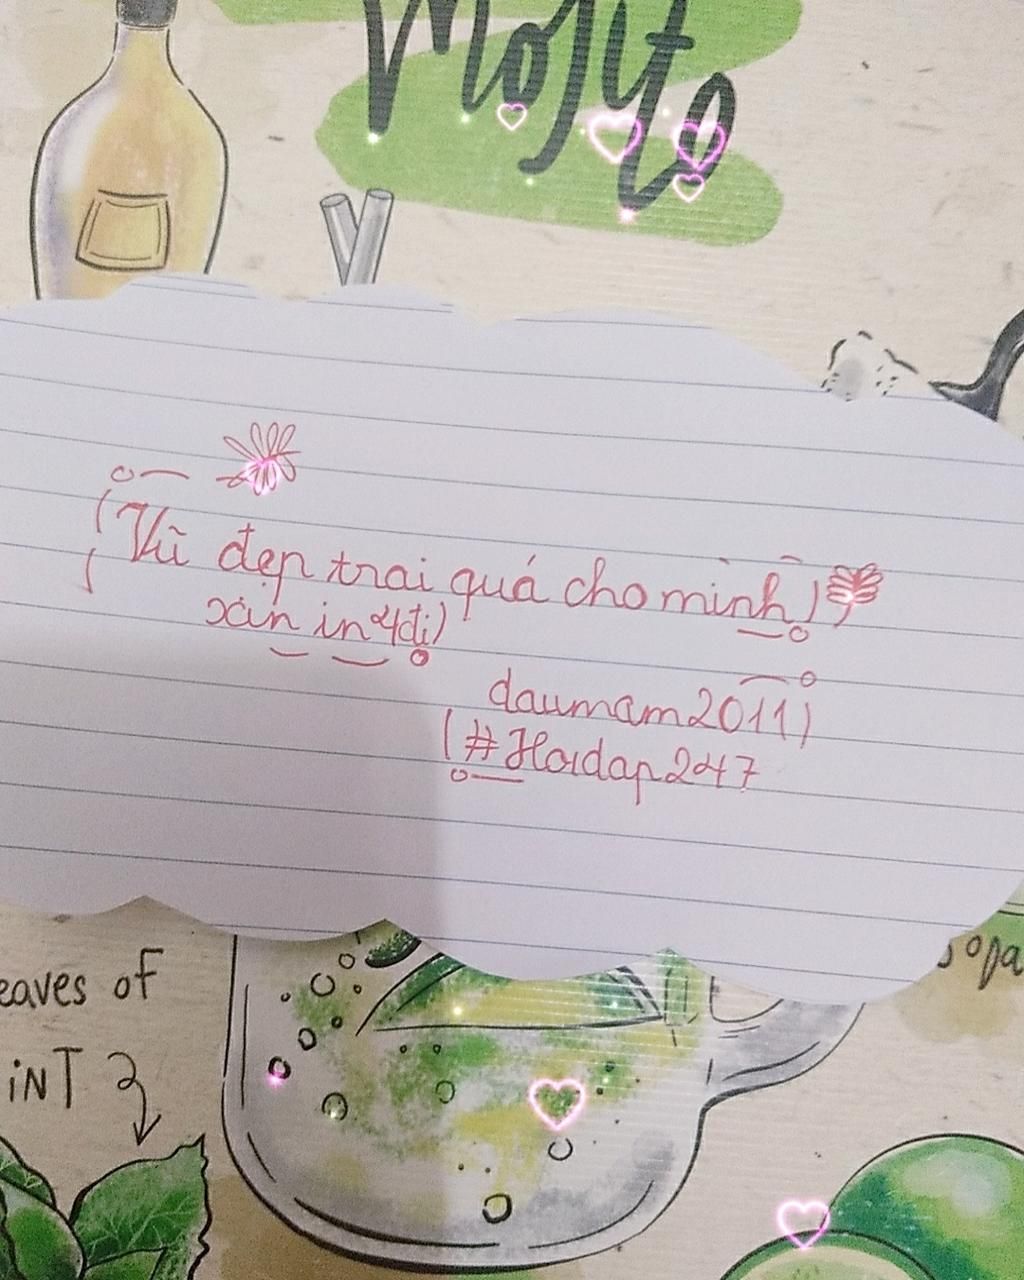 Mojito
Vũ đẹp trai quá cho mình
xin in4 đi
daumam2011
#Hoidap247
eaves of
iNT